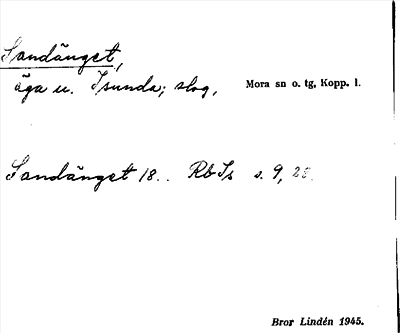 Sandänget,
äga u. Isunda; slog,
Mora sn o. tg, Kopp. l.
Sandänget 18.. Rb Is s. 9, 28.
Bror Lindén 1945.